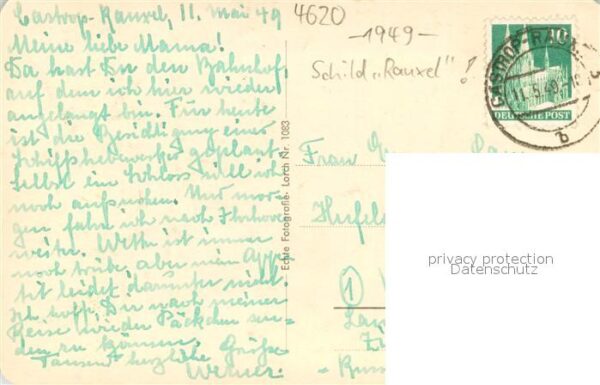 Castrop-Rauxel, 11. Mai 49
Meine liebe Mama!
Da hast Du den Bahnhof,
auf dem ich hier wieder
angelangt bin. Für heute
ist die Besichtigung eines
Schiffshebewerkes geplant.
Selbst ein Schloss will ich
noch aufsuchen. Und mor-
gen fahre ich nach
weiter. ist immer
noch trübe, aber mein Appe-
tit leidet darunter nicht.
Ich hoffe, Dir nach meiner
Reise wieder Päckchen sen-
den zu können.
Tausend herzliche Grüße
Werner.
4620
-1949-
Schild "Rauxel" !
Echte Fotografie- Lorch Nr. 1083
10
DEUTSCHE POST
CASTROP-RAUXEL
11.5.49
b
Frau
privacy protection
Datenschutz